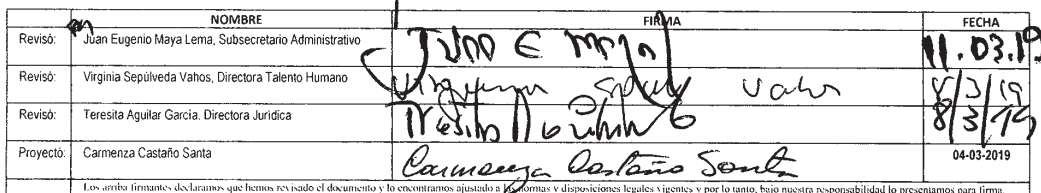 NOMBRE FIRMA FECHA
Revisó: Juan Eugenio Maya Lema, Subsecretario Administrativo Juan E Maya 11.03.19
Revisó: Virginia Sepúlveda Vahos, Directora Talento Humano Virginia Vahos /3/19
Revisó: Teresita Aguilar García. Directora Jurídica Teresita 8/3/19
Proyectó: Carmenza Castaño Santa Carmenza Castaño Santa 04-03-2019
Los arriba firmantes declaramos que hemos revisado el documento y lo encontramos ajustado a las normas y disposiciones legales vigentes y por lo tanto, bajo nuestra responsabilidad lo presentamos para firma.